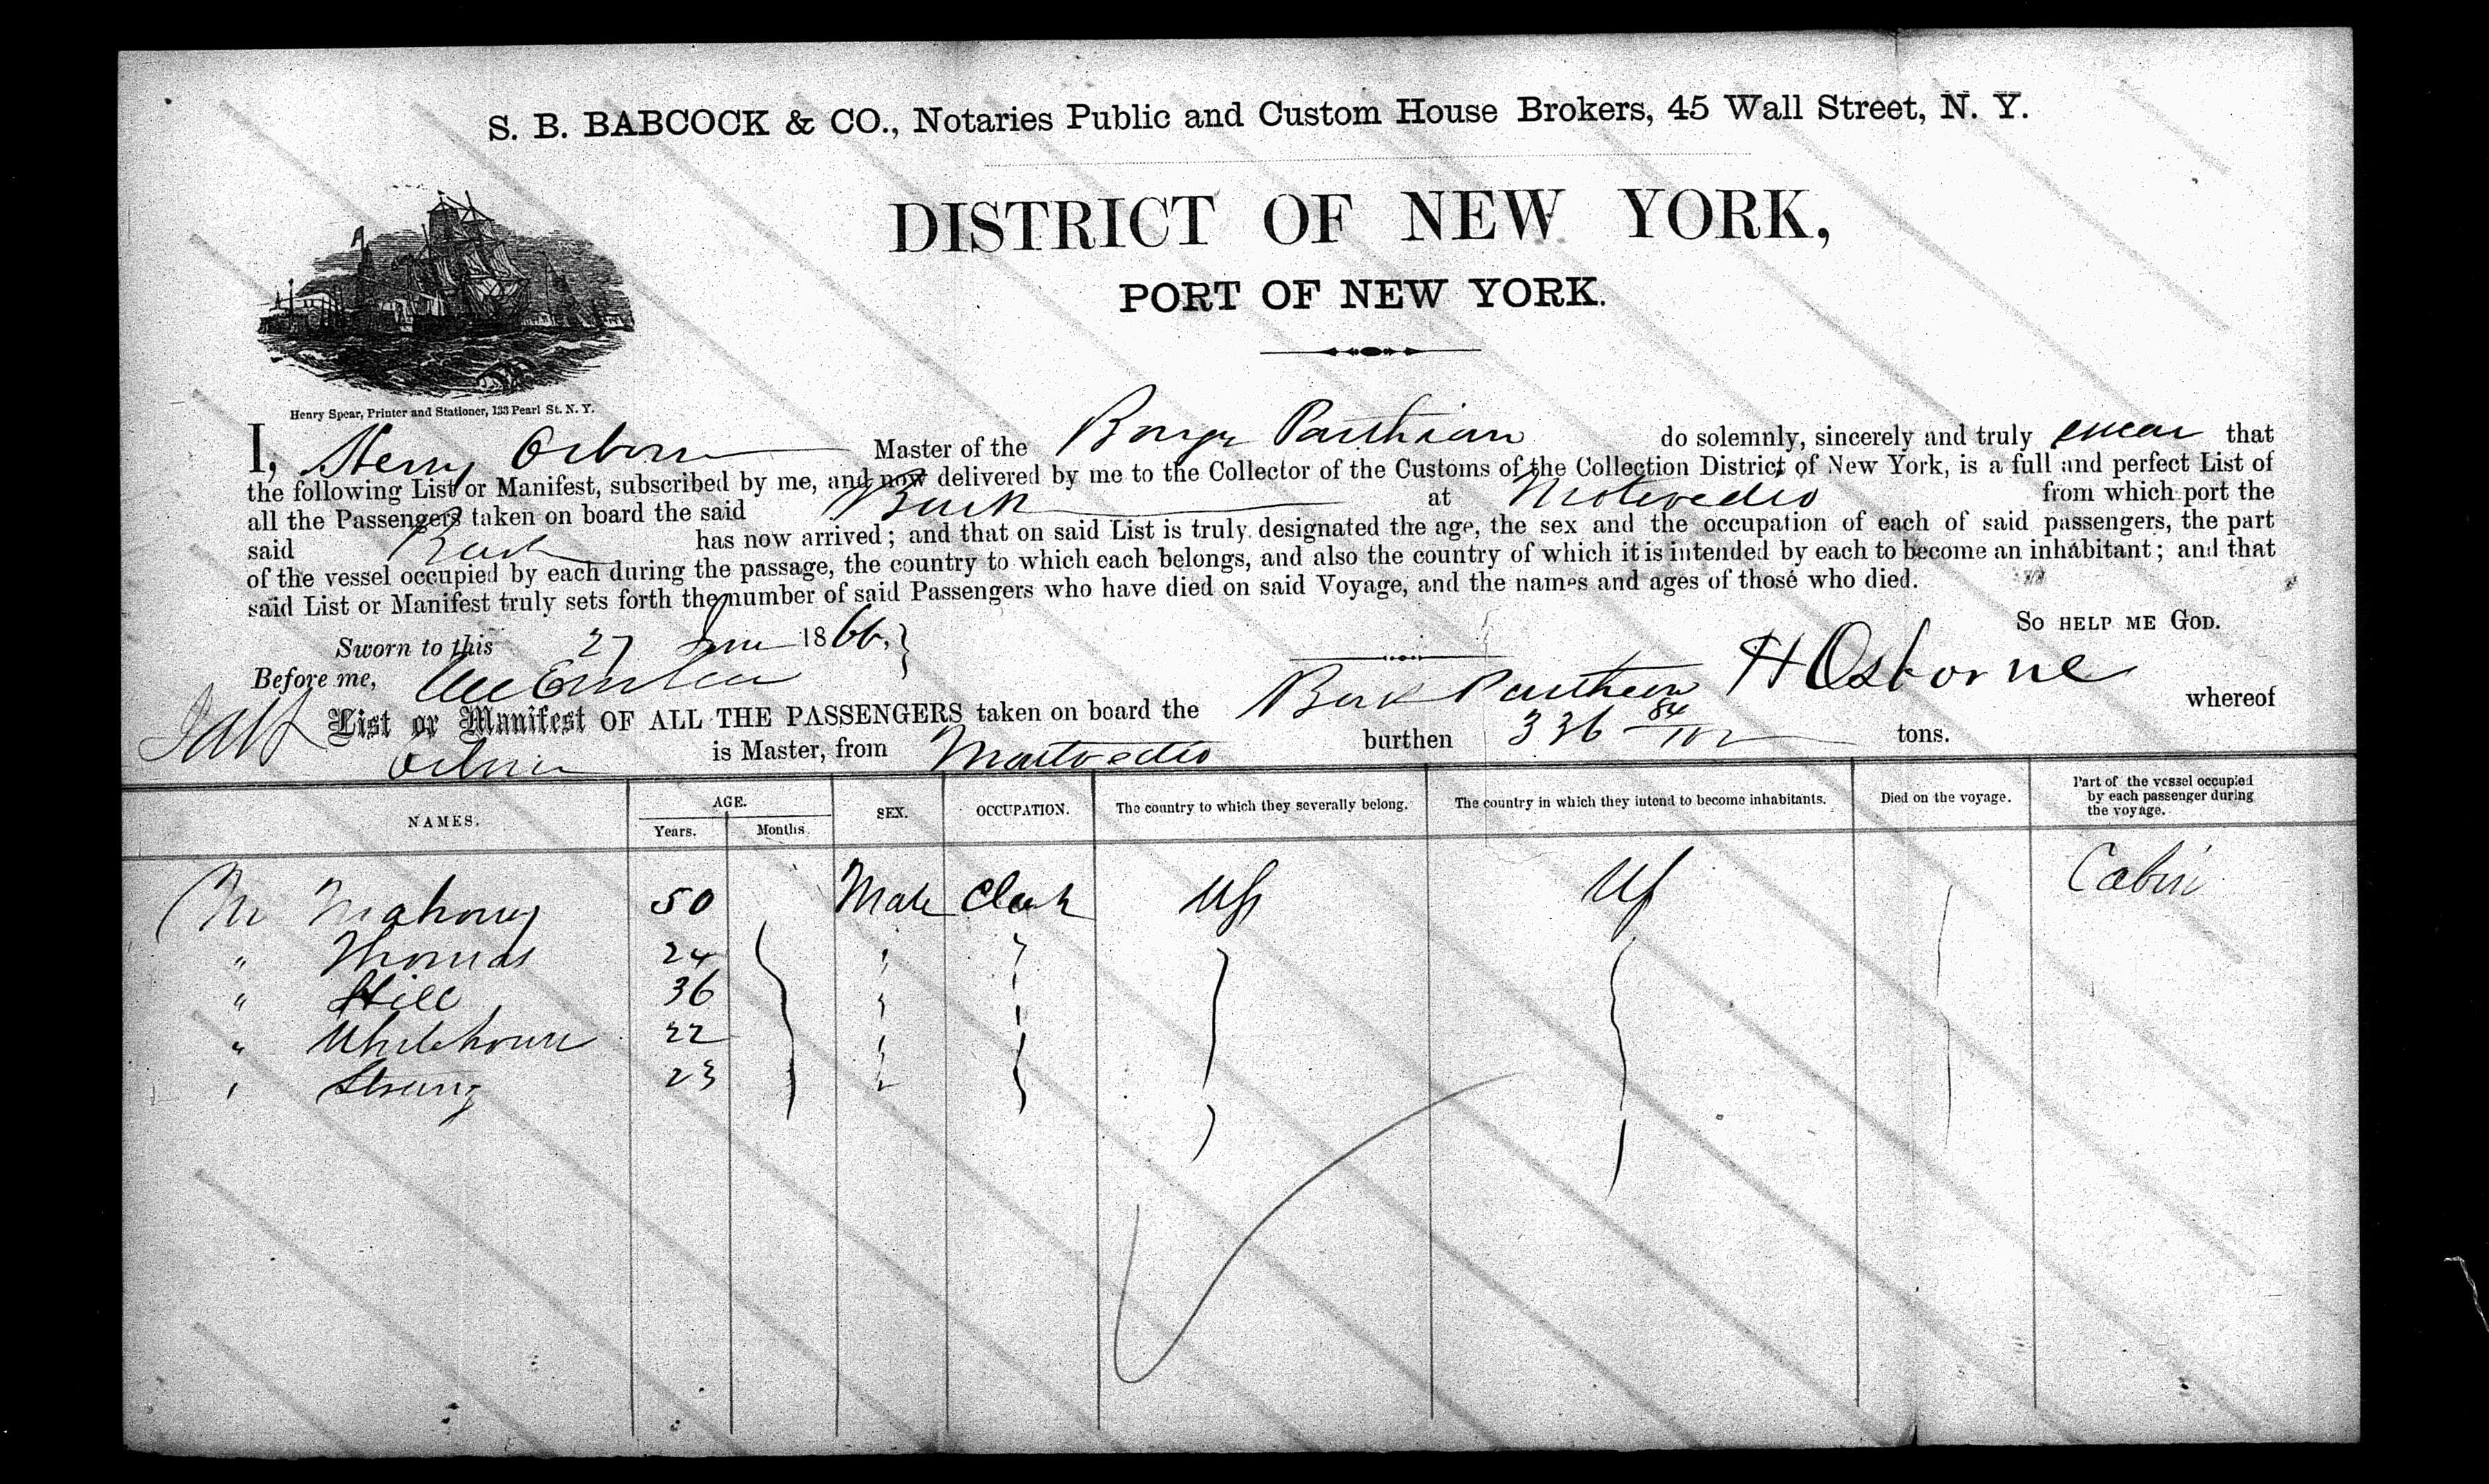 S. B. BABCOCK & CO., Notaries Public and Custom House Brokers, 45 Wall Street, N. Y.
DISTRICT OF NEW YORK,
PORT OF NEW YORK.
Henry Spear, Printer and Stationer, 133 Pearl St. N. Y.
I, Henry Osborn Master of the Parthian do solemnly, sincerely and truly swear that
the following List or Manifest, subscribed by me, and now delivered by me to the Collector of the Customs of the Collection District of New York, is a full and perfect List of
all the Passengers taken on board the said Bark at Motevedio from which port the
said Bark has now arrived; and that on said List is truly designated the age, the sex and the occupation of each of said passengers, the part
of the vessel occupied by each during the passage, the country to which each belongs, and also the country of which it is intended by each to become an inhabitant; and that
said List or Manifest truly sets forth the number of said Passengers who have died on said Voyage, and the names and ages of those who died.
So HELP ME GOD.
Sworn to this 27 June 1866.
Before me, H Osborne
List or Manifest OF ALL THE PASSENGERS taken on board the Bark whereof
Osborn is Master, from burthen 336 84/102 tons.
NAMES. AGE. Years. Months. SEX. OCCUPATION. The country to which they severally belong. The country in which they intend to become inhabitants. Died on the voyage. Part of the vessel occupied by each passenger during the voyage.
Mr Mahony 50 Male Clerk US US Cabin
" Thomas 24
" Hill 36
" Whitehouse 22
" Strung 23